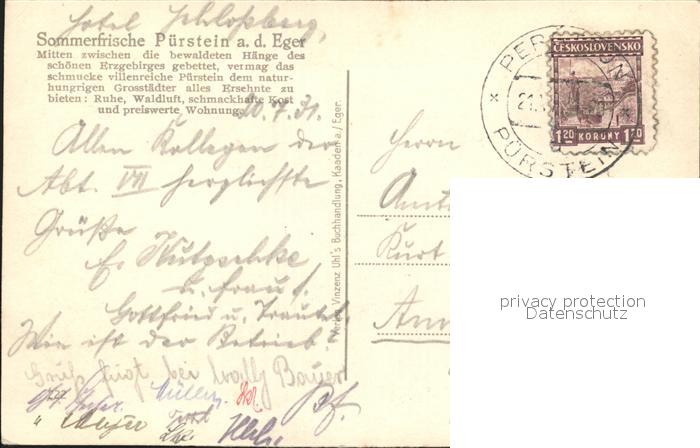 Hotel Schloßberg,
Sommerfrische Pürstein a. d. Eger
Mitten zwischen die bewaldeten Hänge des
schönen Erzgebirges gebettet, vermag das
schmucke villenreiche Pürstein dem natur-
hungrigen Grosstädter alles Ersehnte zu
bieten: Ruhe, Waldluft, schmackhafte Kost
und preiswerte Wohnung.
Allen Kollegen der
Abt. VII herzlichste
Grüße
u. Frau
Gottfried u. Traudel
Wie ist der Betrieb?
Gruß fügt bei Wally Bauer
Verlag Vinzenz Uhl's Buchhandlung, Kaaden a./Eger.
ČESKOSLOVENSKO
1.20 KORUNY 1.20
PÜRSTEIN
Herrn
Kurt
privacy protection
Datenschutz